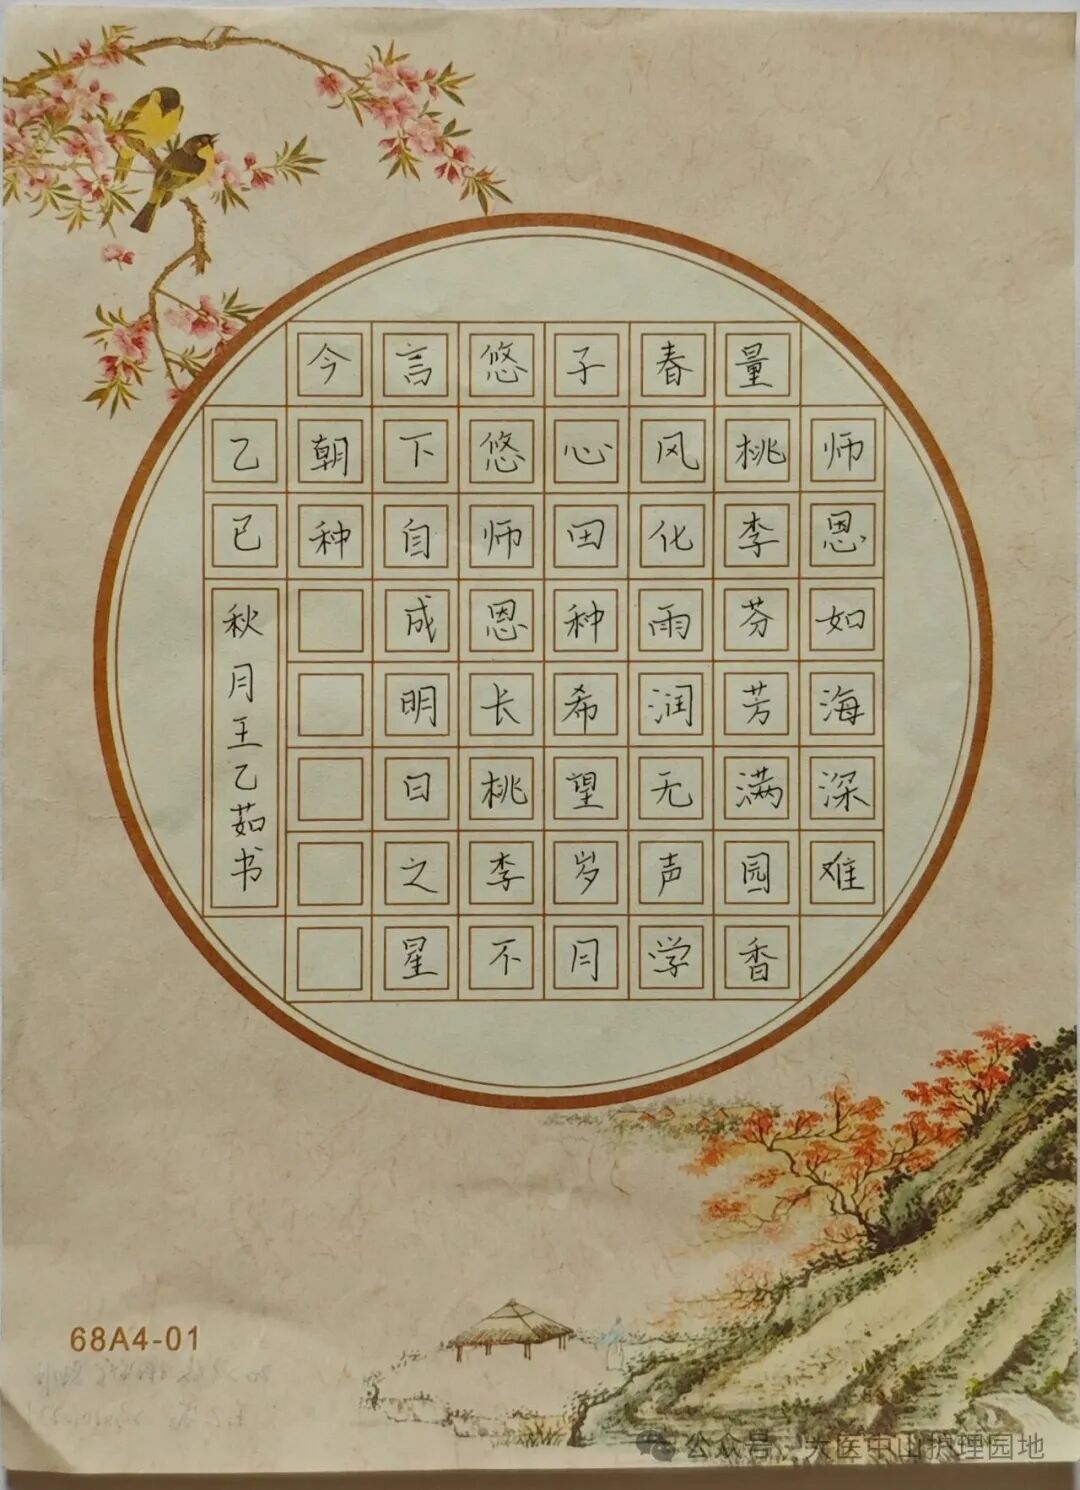 师恩如海深难
量桃李芬芳满园香
春风化雨润无声学
子心田种希望岁月
悠悠师恩长桃李不
言下自成明日之星
今朝种
乙巳
秋月王乙茹书
68A4-01
公众号：大医中山护理园地